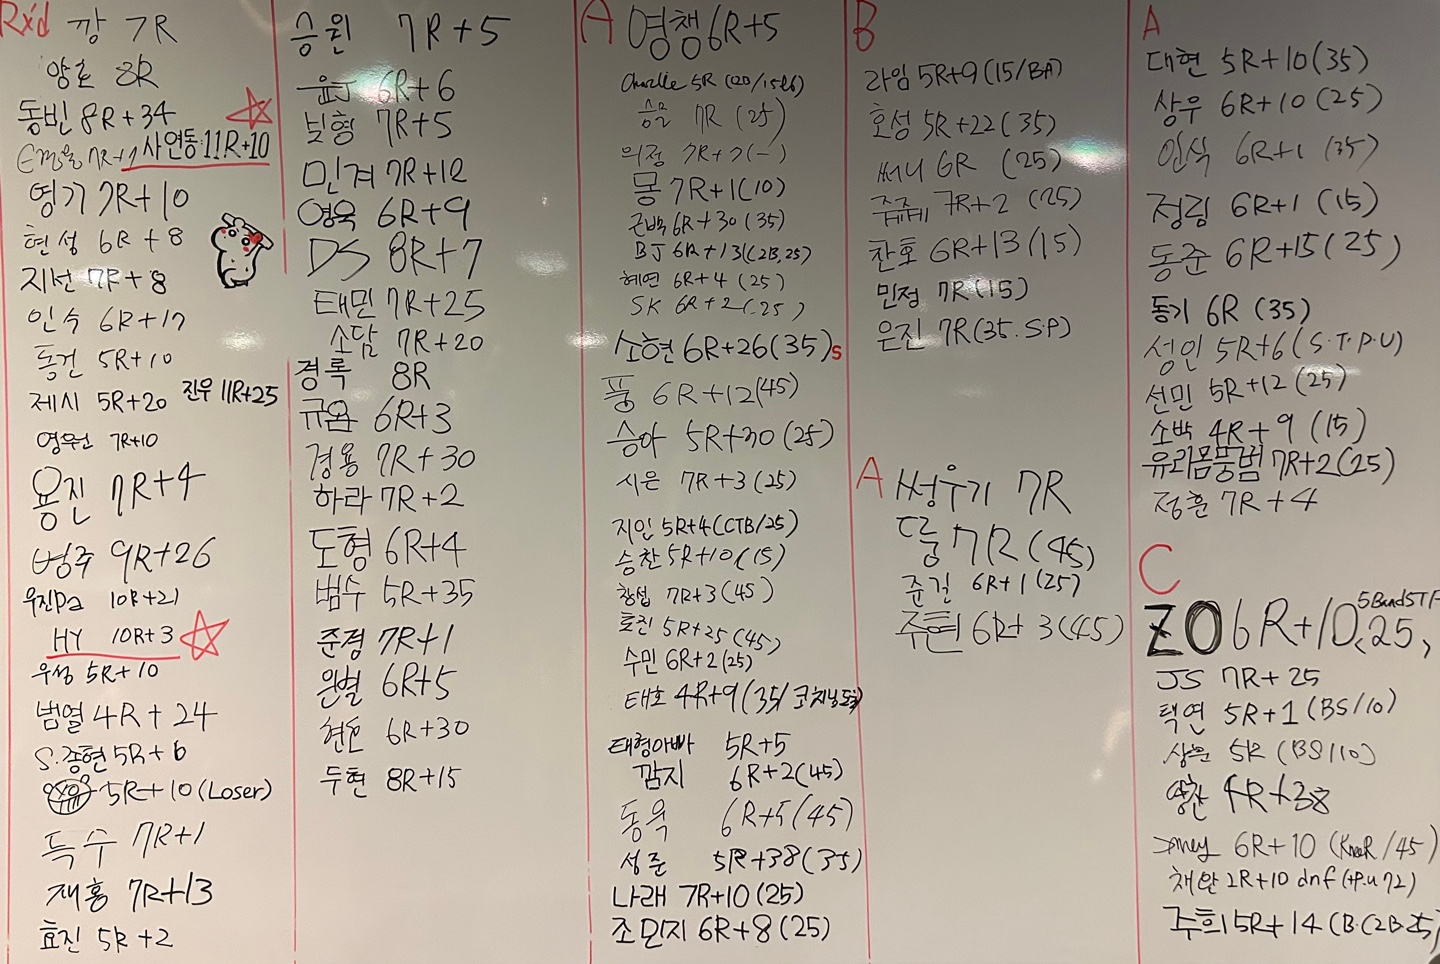 Rx'd 깡 7R
양호 8R
동빈 8R+34
7R+7 사연동 11R+10
영기 7R+10
현성 6R+8
지선 7R+8
인수 6R+17
동건 5R+10
제시 5R+20 진우 11R+25
영원 7R+10
용진 7R+4
범주 9R+26
우진pa 10R+21
HY 10R+3
우성 5R+10
범열 4R+24
S.종현 5R+6
5R+10 (Loser)
득수 7R+1
재홍 7R+13
효진 5R+2
승원 7R+5
윤J 6R+6
보형 7R+5
민겨 7R+12
영욱 6R+9
DS 8R+7
태민 7R+25
소담 7R+20
경록 8R
규용 6R+3
경용 7R+30
하라 7R+2
도형 6R+4
범수 5R+35
준경 7R+1
원별 6R+5
6R+30
두현 8R+15
A 영챙 6R+5
5R (20/15lb)
7R (25)
의정 7R+7 (-)
몽 7R+1 (10)
근백 6R+30 (35)
BJ 6R+13 (2B.25)
혜연 6R+4 (25)
SK 6R+2 (25)
소현 6R+26 (35)s
풍 6R+12 (45)
승아 5R+30 (25)
시은 7R+3 (25)
지인 5R+4 (CTB/25)
승찬 5R+10 (15)
창섭 7R+3 (45)
효진 5R+25 (45)
수민 6R+2 (25)
태호 4R+9 (35/
태형아빠 5R+5
깜지 6R+2 (45)
동욱 6R+5 (45)
성준 5R+38 (35)
나래 7R+10 (25)
조민지 6R+8 (25)
B
라임 5R+9 (15/BA)
호성 5R+22 (35)
써니 6R (25)
쥬쥬 7R+2 (25)
찬호 6R+13 (15)
민정 7R (15)
은진 7R (35.S.P)
A 썽우기 7R
7R (45)
준건 6R+1 (25)
주현 6R+3 (45)
A
대현 5R+10 (35)
상우 6R+10 (25)
인식 6R+1 (35)
정림 6R+1 (15)
동준 6R+15 (25)
동기 6R (35)
성인 5R+6 (S.T.P.U)
선민 5R+12 (25)
소박 4R+9 (15)
유리몸풍범 7R+2 (25)
정훈 7R+4
C
ZO 6R+10 (25,
JS 7R+25
택연 5R+1 (BS/10)
5R (BS/10)
4R+38
6R+10 (KneeR/45)
2R+10 dnf (+P.u 72)
주희 5R+14 (B.(2B.25)